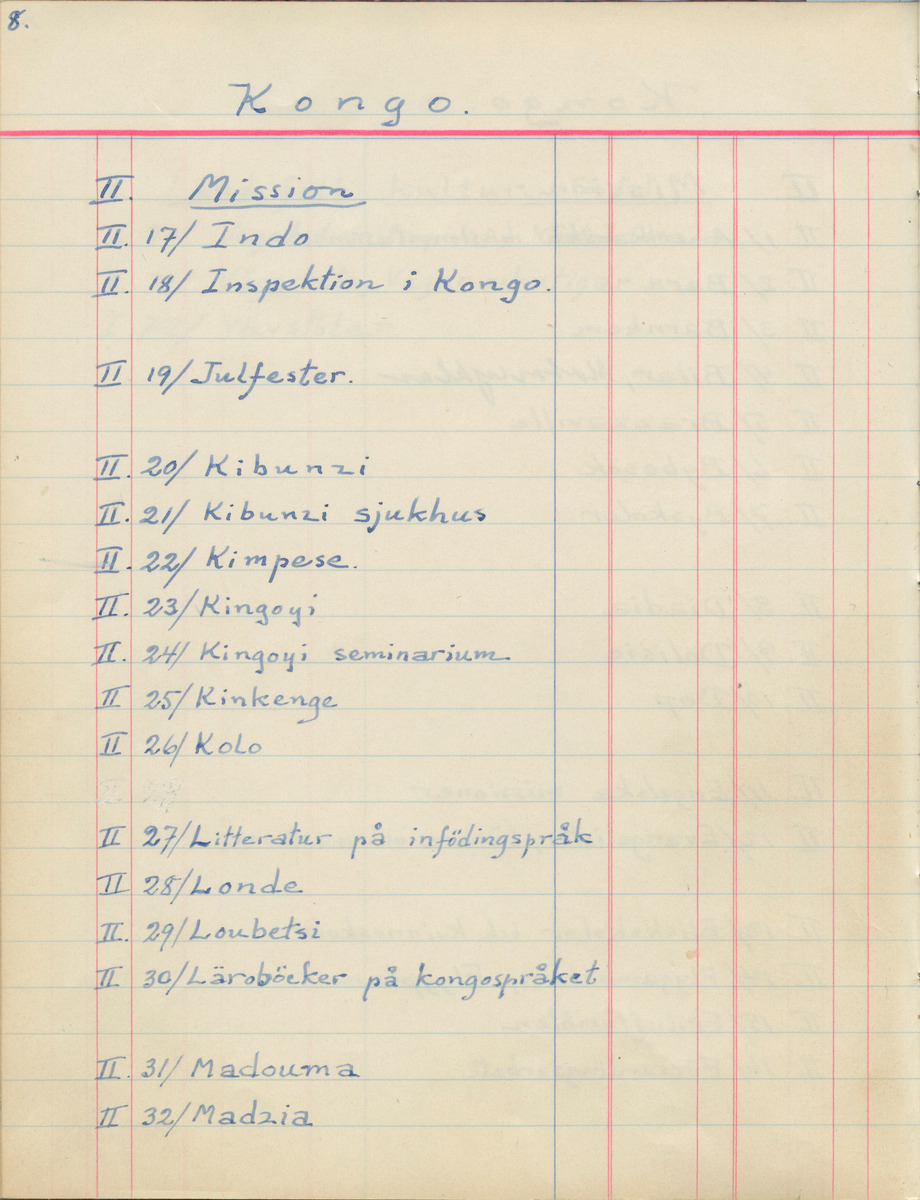 8.
Kongo.
II. Mission
II. 17/ Indo
II. 18/ Inspektion i Kongo.
II 19/ Julfester.
II. 20/ Kibunzi
II. 21/ Kibunzi sjukhus
II. 22/ Kimpese.
II. 23/ Kingoyi
II. 24/ Kingoyi seminarium
II 25/ Kinkenge
II 26/ Kolo
II 27/ Litteratur på infödingspråk
II 28/ Londe
II. 29/ Loubetsi
II 30/ Läroböcker på kongospråket
II. 31/ Madouma
II 32/ Madzia